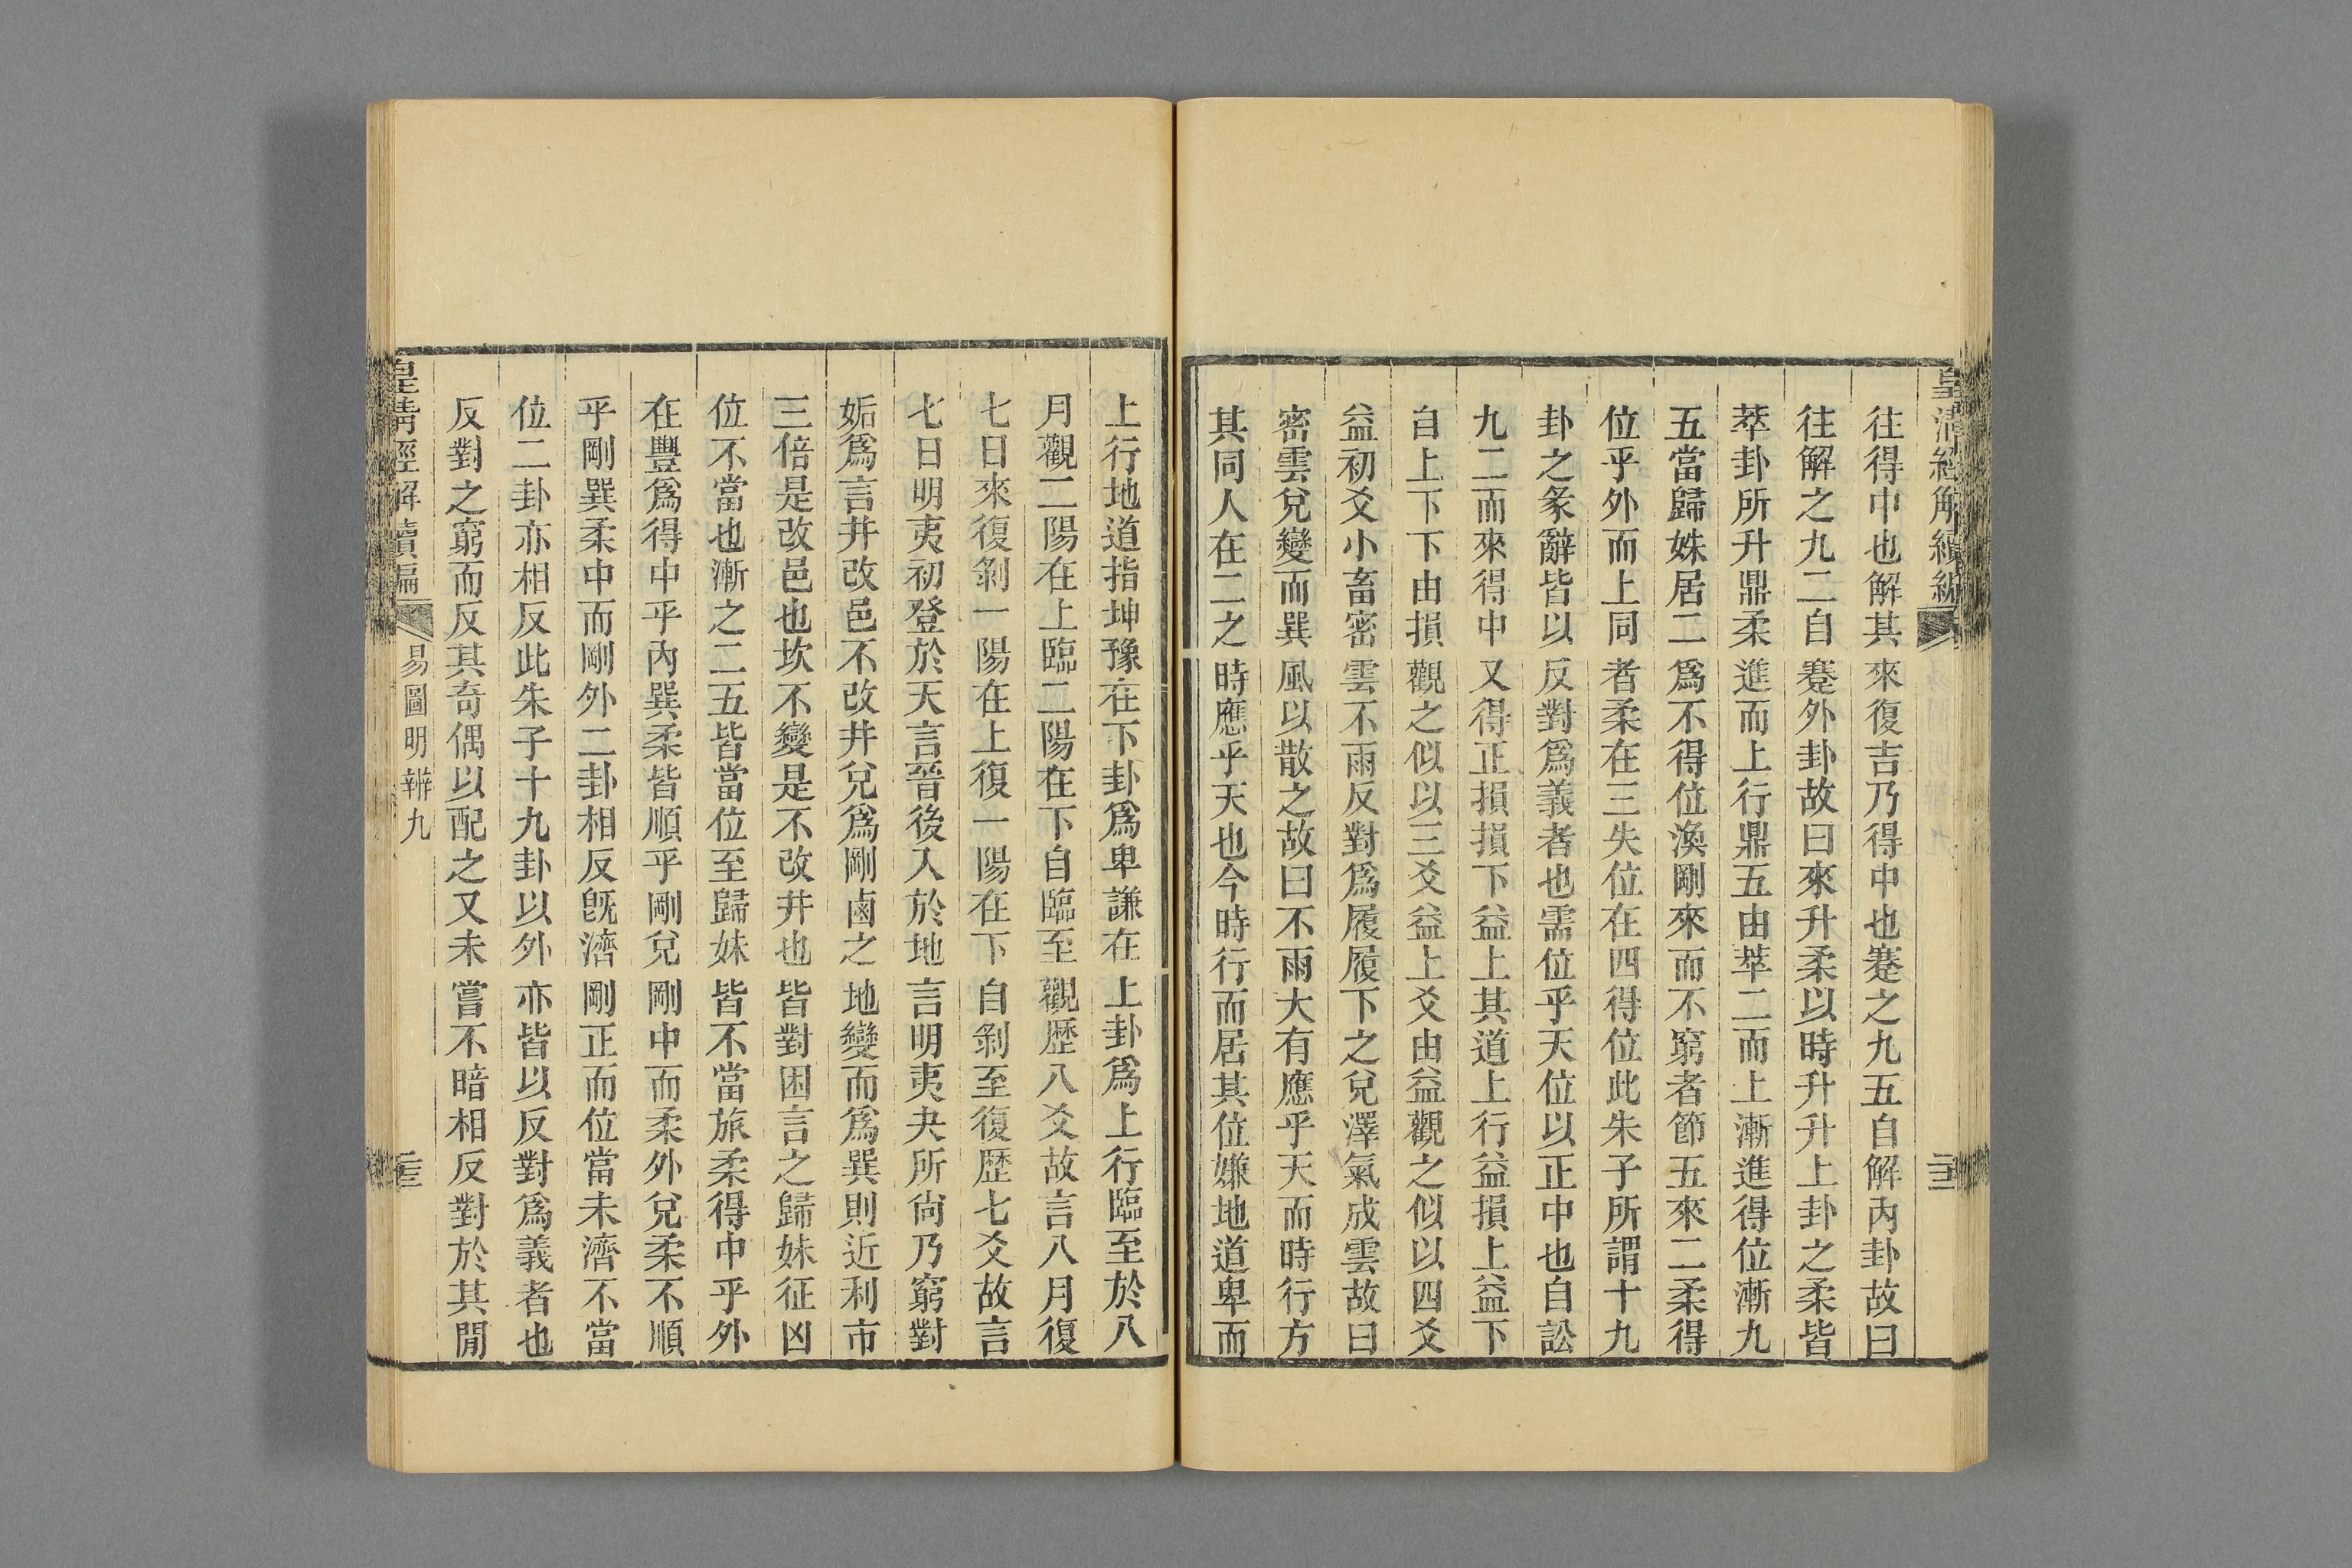 皇清經解續編
往得中也解其來復吉乃得中也蹇之九五自解內卦故曰
往解之九二自蹇外卦故曰來升柔以時升升上卦之柔皆
萃卦所升鼎柔進而上行鼎五由萃二而上漸進得位漸九
五當歸姝居二爲不得位渙剛來而不窮者節五來二柔得
位乎外而上同者柔在三失位在四得位此朱子所謂十九
卦之彖辭皆以反對爲義者也需位乎天位以正中也自訟
九二而來得中又得正損損下益上其道上行益損上益下
自上下下由損觀之似以三爻益上爻由益觀之似以四爻
益初爻小畜密雲不雨反對爲履履下之兌澤氣成雲故曰
密雲兌變而巽風以散之故曰不雨大有應乎天而時行方
其同人在二之時應乎天也今時行而居其位嫌地道卑而
上行地道指坤豫在下卦爲卑謙在上卦爲上行臨至於八
月觀二陽在上臨二陽在下自臨至觀歷八爻故言八月復
七日來復剝一陽在上復一陽在下自剝至復歷七爻故言
七日明夷初登於天言晉後入於地言明夷夬所尙乃窮對
姤爲言井改邑不改井兌爲剛鹵之地變而爲巽則近利市
三倍是改邑也坎不變是不改井也皆對困言之歸妹征凶
位不當也漸之二五皆當位至歸妹皆不當旅柔得中乎外
在豐爲得中乎內巽柔皆順乎剛兌剛中而柔外兌柔不順
乎剛巽柔中而剛外二卦相反旣濟剛正而位當未濟不當
位二卦亦相反此朱子十九卦以外亦皆以反對爲義者也
反對之窮而反其奇偶以配之又未嘗不暗相反對於其閒
皇淸經解續編
易圖明辨九